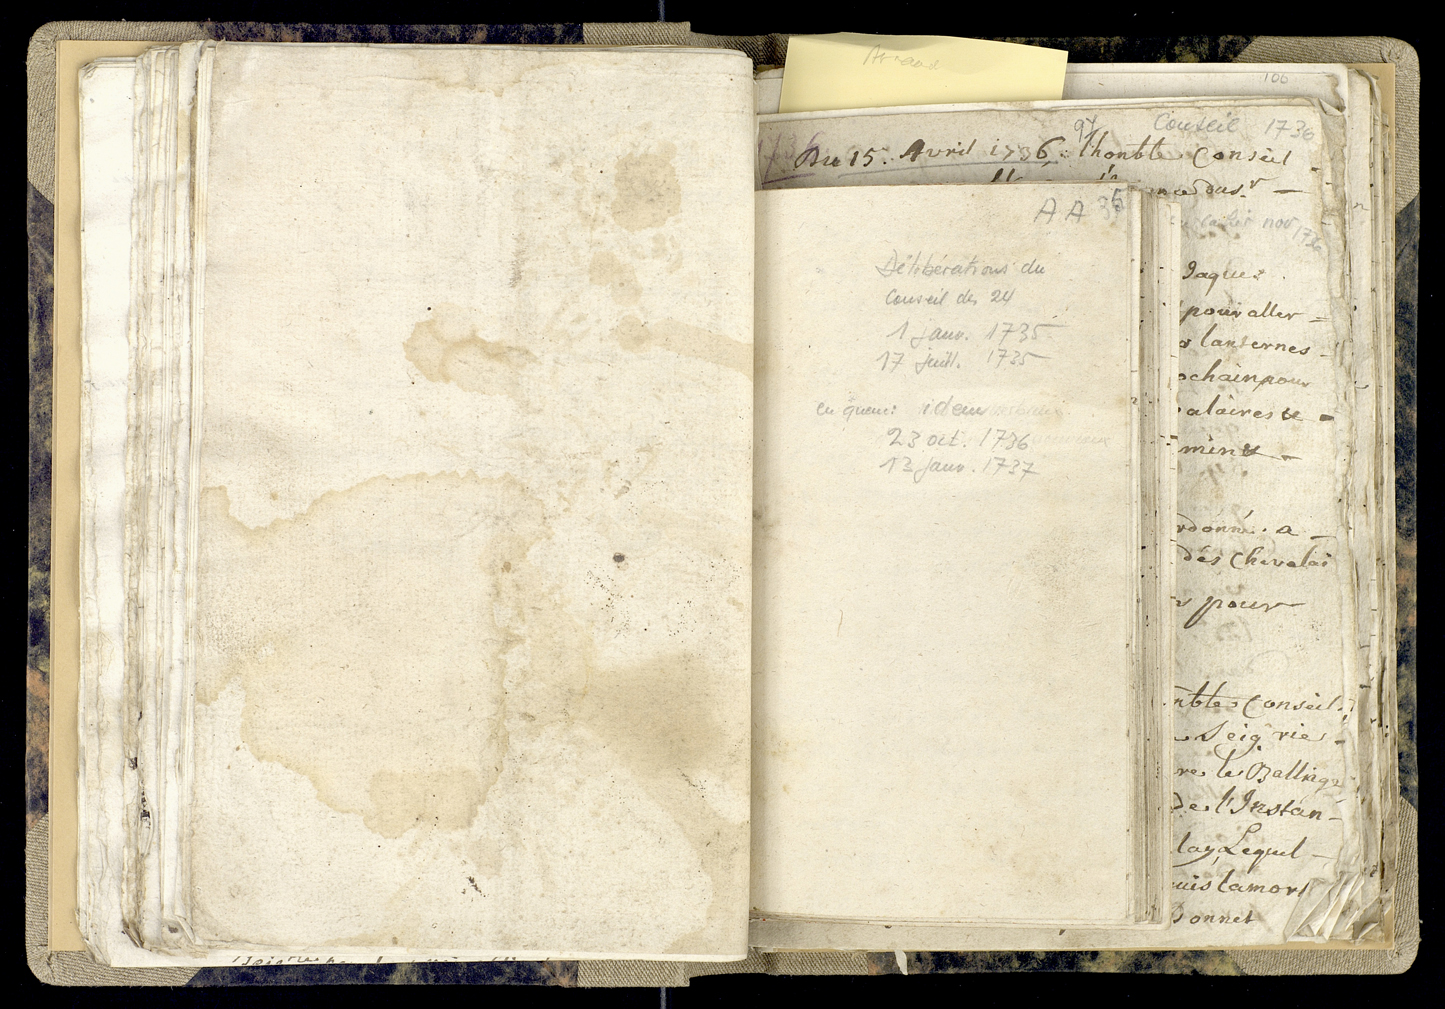 106
97 Conseil 1736
Du 15. Avril 1736. l'honble Conseil
AA 35
Délibérations du
Conseil des 24
1 janv. 1735
17 juill. 1735
en queue: idem
23 oct. 1736
13 janv. 1737
nov 1736
Jaques
pour aller
lanternes
ochain pour
alaires &
ment
rdonné a
des Chevalai
pour
nble Conseil
Seigrie
re le Balliag
de l'Instan-
lay, Lequel
uis la mort
onnet